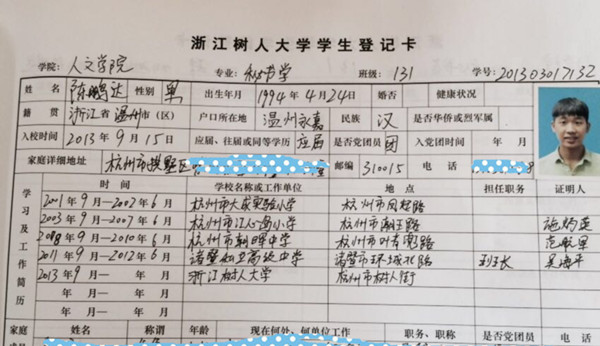 浙江树人大学学生登记卡
学院：人文学院 专业：秘书学 班级：131 学号：201303017132
姓名 陈鹏达 性别 男 出生年月 1994年4月24日 婚否 健康状况
籍贯 浙江省温州市(区) 户口所在地 温州永嘉 民族 汉 是否华侨或烈军属
入校时间 2013年9月15日 应届、往届或同等学历 应届 是否党团员 团 入党团时间 年 月
家庭详细地址 杭州市拱墅区 邮编 310015 电话
学习及工作简历
时间 学校名称或工作单位 地点 担任职务 证明人
2001年9月—2002年6月 杭州市大成实验小学 杭州市凤起路
2003年9月—2007年6月 杭州市江心岛小学 杭州市潮王路
2008年9月—2010年6月 杭州市朝晖中学 杭州市叶青兜路
2011年9月—2012年6月 诸暨 高级中学 诸暨市环城北路 班长 吴海平
2013年9月— 年 月 浙江树人大学 杭州市树人街
年 月— 年 月
年 月— 年 月
家庭 姓名 称谓 年龄 现在何处、何单位工作 职务、职称 是否党团员 电话